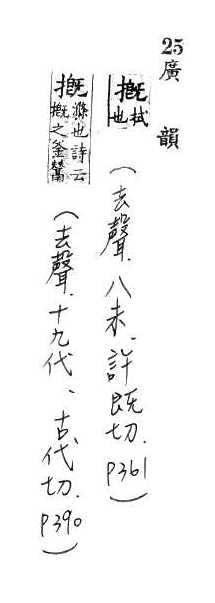 25 廣韻
摡拭也(去聲.八未、許既切.P361)
摡滌也詩云摡之釜鬵(去聲.十九代、古代切.P390)